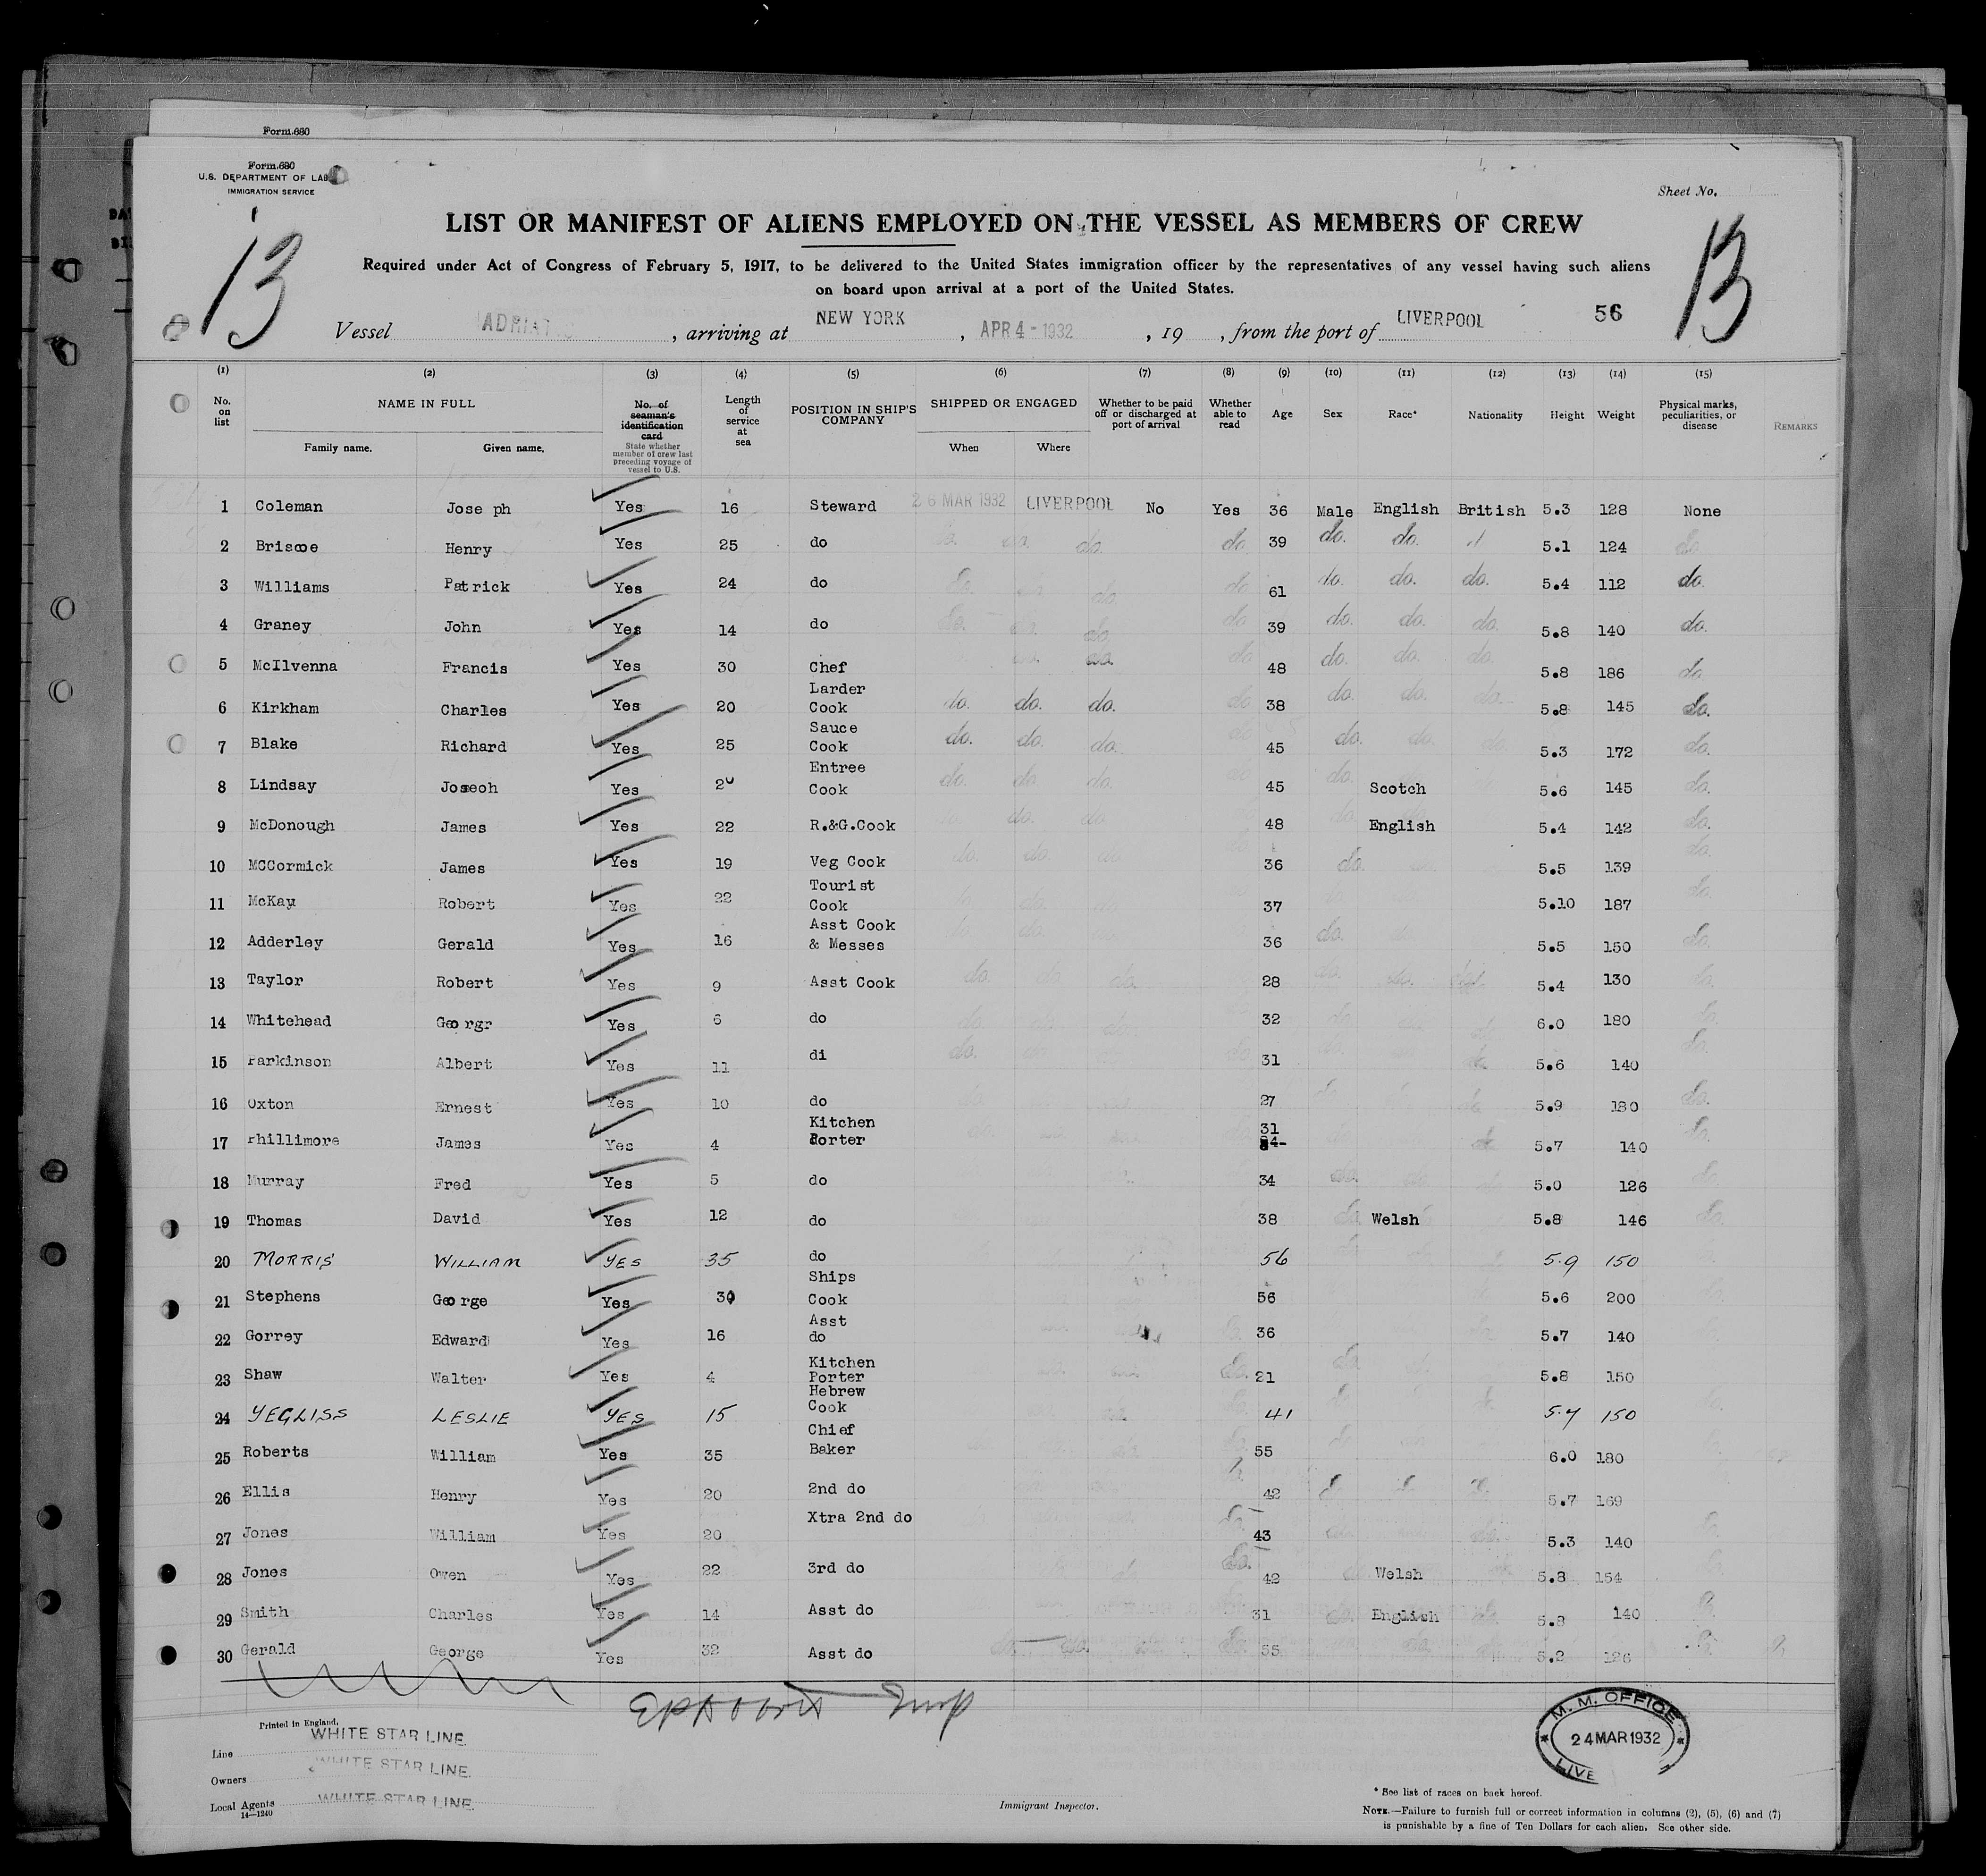 Form 680
Form 680
U.S. DEPARTMENT OF LAB
IMMIGRATION SERVICE
Sheet No.
13
13
LIST OR MANIFEST OF ALIENS EMPLOYED ON THE VESSEL AS MEMBERS OF CREW
Required under Act of Congress of February 5, 1917, to be delivered to the United States immigration officer by the representatives of any vessel having such aliens
on board upon arrival at a port of the United States.
56
Vessel ADRIAT , arriving at NEW YORK , APR 4 - 1932 , 19 , from the port of LIVERPOOL
(1) (2) (3) (4) (5) (6) (7) (8) (9) (10) (11) (12) (13) (14) (15)
No. on list NAME IN FULL Family name. Given name. No. of seaman's identification card State whether member of crew last preceding voyage of vessel to U.S. Length of service at sea POSITION IN SHIP'S COMPANY SHIPPED OR ENGAGED When Where Whether to be paid off or discharged at port of arrival Whether able to read Age Sex Race* Nationality Height Weight Physical marks, peculiarities, or disease REMARKS
1 Coleman Jose ph Yes 16 Steward 26 MAR 1932 LIVERPOOL No Yes 36 Male English British 5.3 128 None
2 Briscoe Henry Yes 25 do do. do. 39 do. do. 5.1 124 do.
3 Williams Patrick Yes 24 do do. do. do. 61 do. do. do. 5.4 112 do.
4 Graney John Yes 14 do do. do. do. do 39 do. do. do. 5.8 140 do.
5 McIlvenna Francis Yes 30 Chef do. do. do 48 do. do. do. 5.8 186 do.
6 Kirkham Charles Yes 20 Larder Cook do. do. do. do 38 do. do. do. 5.8 145 do.
7 Blake Richard Yes 25 Sauce Cook do. do. do. do 45 do. do. do. 5.3 172 do.
8 Lindsay Joseoh Yes 20 Entree Cook do. do. do. 45 do. Scotch 5.6 145 do.
9 McDonough James Yes 22 R.&G.Cook do. do. 48 English 5.4 142 do.
10 MCCormick James Yes 19 Veg Cook do. do. do. 36 do. 5.5 139 do.
11 McKay Robert Yes 22 Tourist Cook 37 5.10 187 do.
12 Adderley Gerald Yes 16 Asst Cook & Messes 36 do. 5.5 150 do.
13 Taylor Robert Yes 9 Asst Cook do. do. do. 28 do. do. do. 5.4 130 do.
14 Whitehead Georgr Yes 6 do do. 32 do. 6.0 180 do.
15 Parkinson Albert Yes 11 di do. 31 do. 5.6 140 do.
16 Oxton Ernest Yes 10 do 27 do. 5.9 180 do.
17 Phillimore James Yes 4 Kitchen Porter 31 do. 5.7 140 do.
18 Murray Fred Yes 5 do 34 do. 5.0 126
19 Thomas David Yes 12 do 38 do. Welsh 5.8 146 do.
20 MORRIS WILLIAM YES 35 do 56 5.9 150
21 Stephens George Yes 30 Ships Cook 56 5.6 200
22 Gorrey Edward Yes 16 Asst do 36 5.7 140
23 Shaw Walter Yes 4 Kitchen Porter do. 21 do 5.8 150
24 YEGLISS LESLIE YES 15 Hebrew Cook 41 5.7 150
25 Roberts William Yes 35 Chief Baker 55 6.0 180
26 Ellis Henry Yes 20 2nd do 42 5.7 169
27 Jones William Yes 20 Xtra 2nd do 43 5.3 140
28 Jones Owen Yes 22 3rd do do. 42 Welsh 5.8 154
29 Smith Charles Yes 14 Asst do 31 do. English 5.8 140
30 Gerald George Yes 32 Asst do do. do. do. 55 5.2 126
Printed in England.
Line WHITE STAR LINE.
Owners WHITE STAR LINE.
Local Agents WHITE STAR LINE.
14—1240
Immigrant Inspector.
M. M. OFFICE
24 MAR 1932
LIVE
* See list of races on back hereof.
NOTE.—Failure to furnish full or correct information in columns (2), (5), (6) and (7)
is punishable by a fine of Ten Dollars for each alien. See other side.